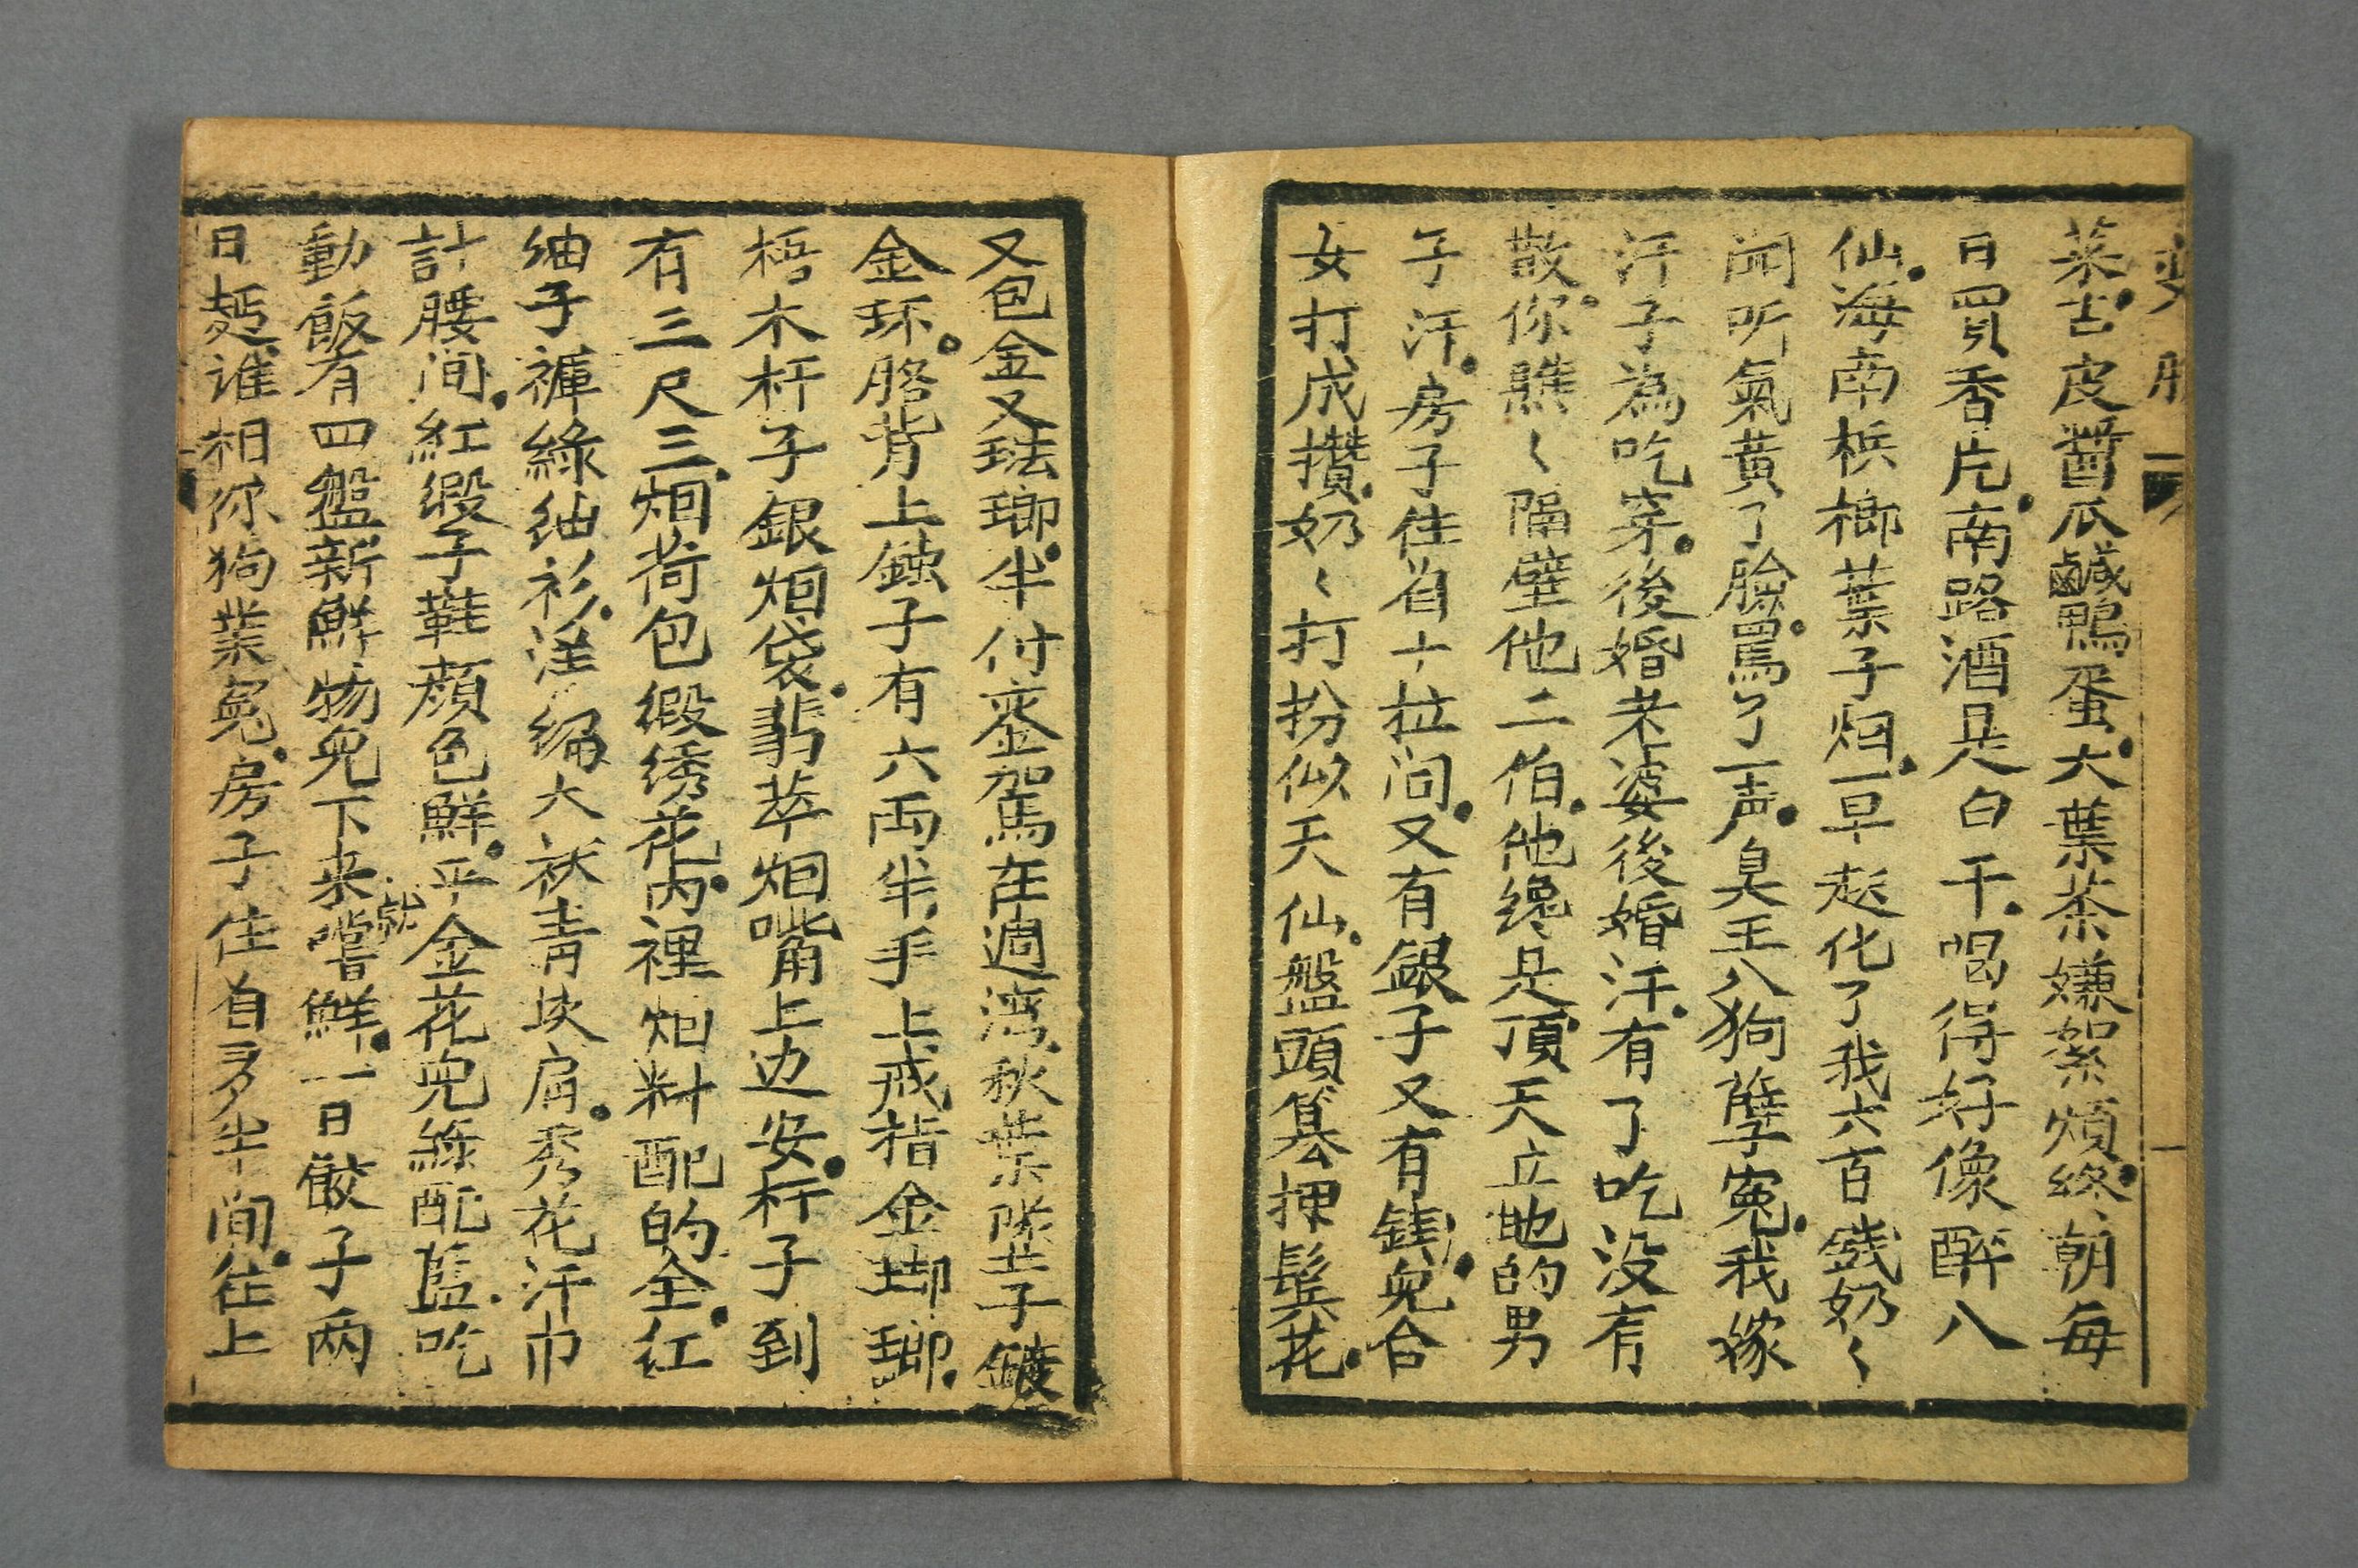 菜.古皮醬瓜鹹鴨蛋.大葉茶嫌絮煩.終朝每
日買香片.南路酒是白干.喝得好像醉八
仙.海南梹榔葉子烟.一早起化了我六百錢奶〻
聞听氣黄了臉.罵了一声.臭王八狗孽寃.我嫁
汗子為吃穿.後婚老婆後婚汗.有了吃没有
散.你瞧〻隔壁他二伯.他纔是頂天立地的男
子汗.房子住着十拉间.又有銀子又有錢.兒合
女打成攢.奶〻打扮似天仙.盤頭簪押鬂花.
又包金又珐瑯.半付鐢駕在週湾.秋葉墜子鍍
金环.胳背上鐲子有六両半.手上戒指金琺瑯.
梧木杆子銀烟袋.翡萃烟嘴上边安.杆子到
有三尺三.烟荷包缎绣花.内裡烟料配的全.红
紬子褲綠紬衫.洋縐大袄青坎肩.秀花汗巾
計腰间.紅缎子鞋颜色鮮.平金花兜綠配藍.吃
動飯有四盤新鮮物兜下来就嚐鮮.一日餃子两
日麫谁相你狗業寃.房子住着多半间.往上